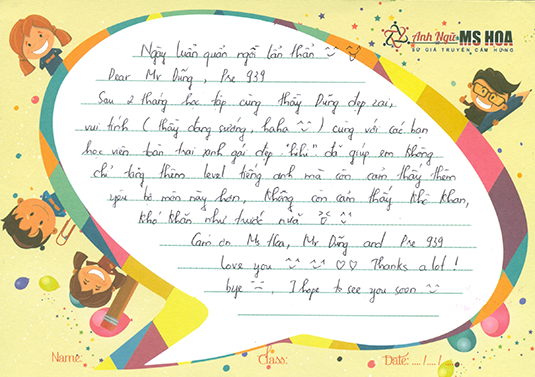 Anh Ngữ MS HOA
SỨ GIẢ TRUYỀN CẢM HỨNG
Ngày luẩn quẩn ngồi lẩn thẩn
Dear Mr Dũng, Pre 939
Sau 2 tháng học tập cùng thầy Dũng đẹp zai,
vui tính (thầy đang sướng, haha) cùng với các bạn
học viên bàn trai xinh gái đẹp "hihi" đã giúp em không
chỉ tăng thêm level tiếng anh mà còn cảm thấy thêm
yêu bộ môn này hơn, không còn cảm thấy khô khan,
khó khăn như trước nữa
Cảm ơn Ms Hoa, Mr Dũng and Pre 939
love you ♡♡ Thanks a lot!
bye, I hope to see you soon
Name:
Class:
Date: .../.../...